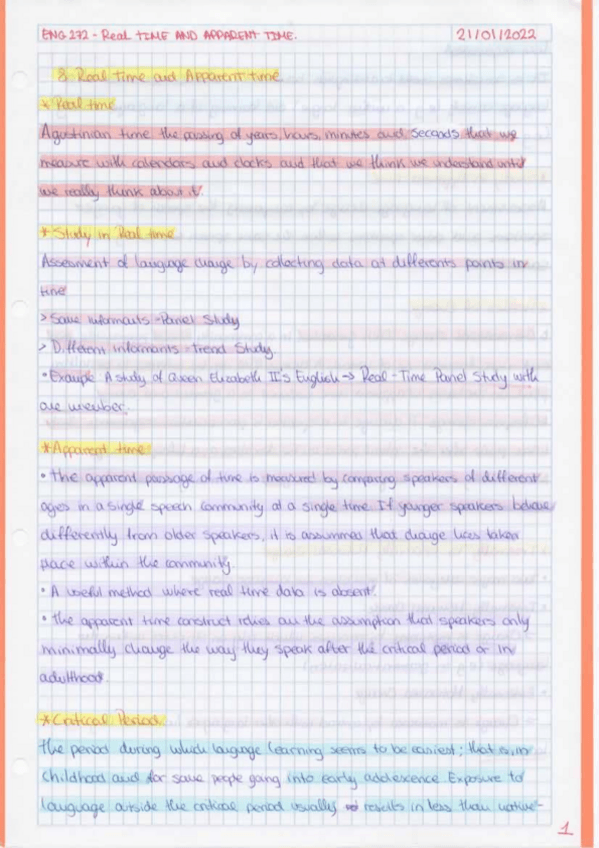 ENG 272 - Real TIME AND APPARENT TIME.
21/01/2022
8. Real time and Apparent time.
* Real time
Agustinian time the passing of years, hours, minutes and seconds that we
measure with calendars and clocks and that we think we understand until
we really think about it.
* Study in Real time
Assesment of language change by collecting data at differents points in
time
> Same informants - Panel Study
> Different informants - Trend Study.
• Example A study of Queen Elizabeth II's English -> Real - Time Panel Study with
one member.
* Apparent time
• The apparent passage of time is measured by comparing speakers of different
ages in a single speech community at a single time. If younger speakers behave
differently from older speakers, it is assummes that change has taken
place within the community.
• A useful method where real time data is absent.
• the apparent time construct relies on the assumption that speakers only
minimally change the way they speak after the critical period or in
adulthood.
* Critical Period
the period during which language learning seems to be easiest; that is, in
childhood and for some people going into early adolescence. Exposure to
language outside the critical period usually results in less than native-
1